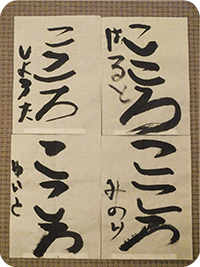 こころ
はると
こころ
しょうた
こころ
みのり
こころ
めいと